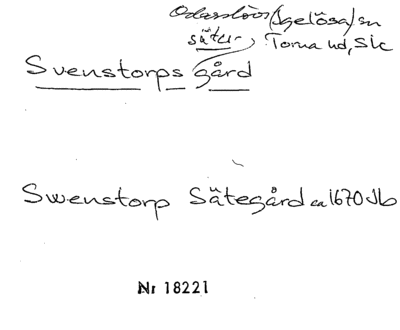 Odarslöv (Igelösa) sn
säteri- Torna hd, Slc
Svenstorps gård
Swenstorp Sätegård ca 1670 Jb
Nr 18221